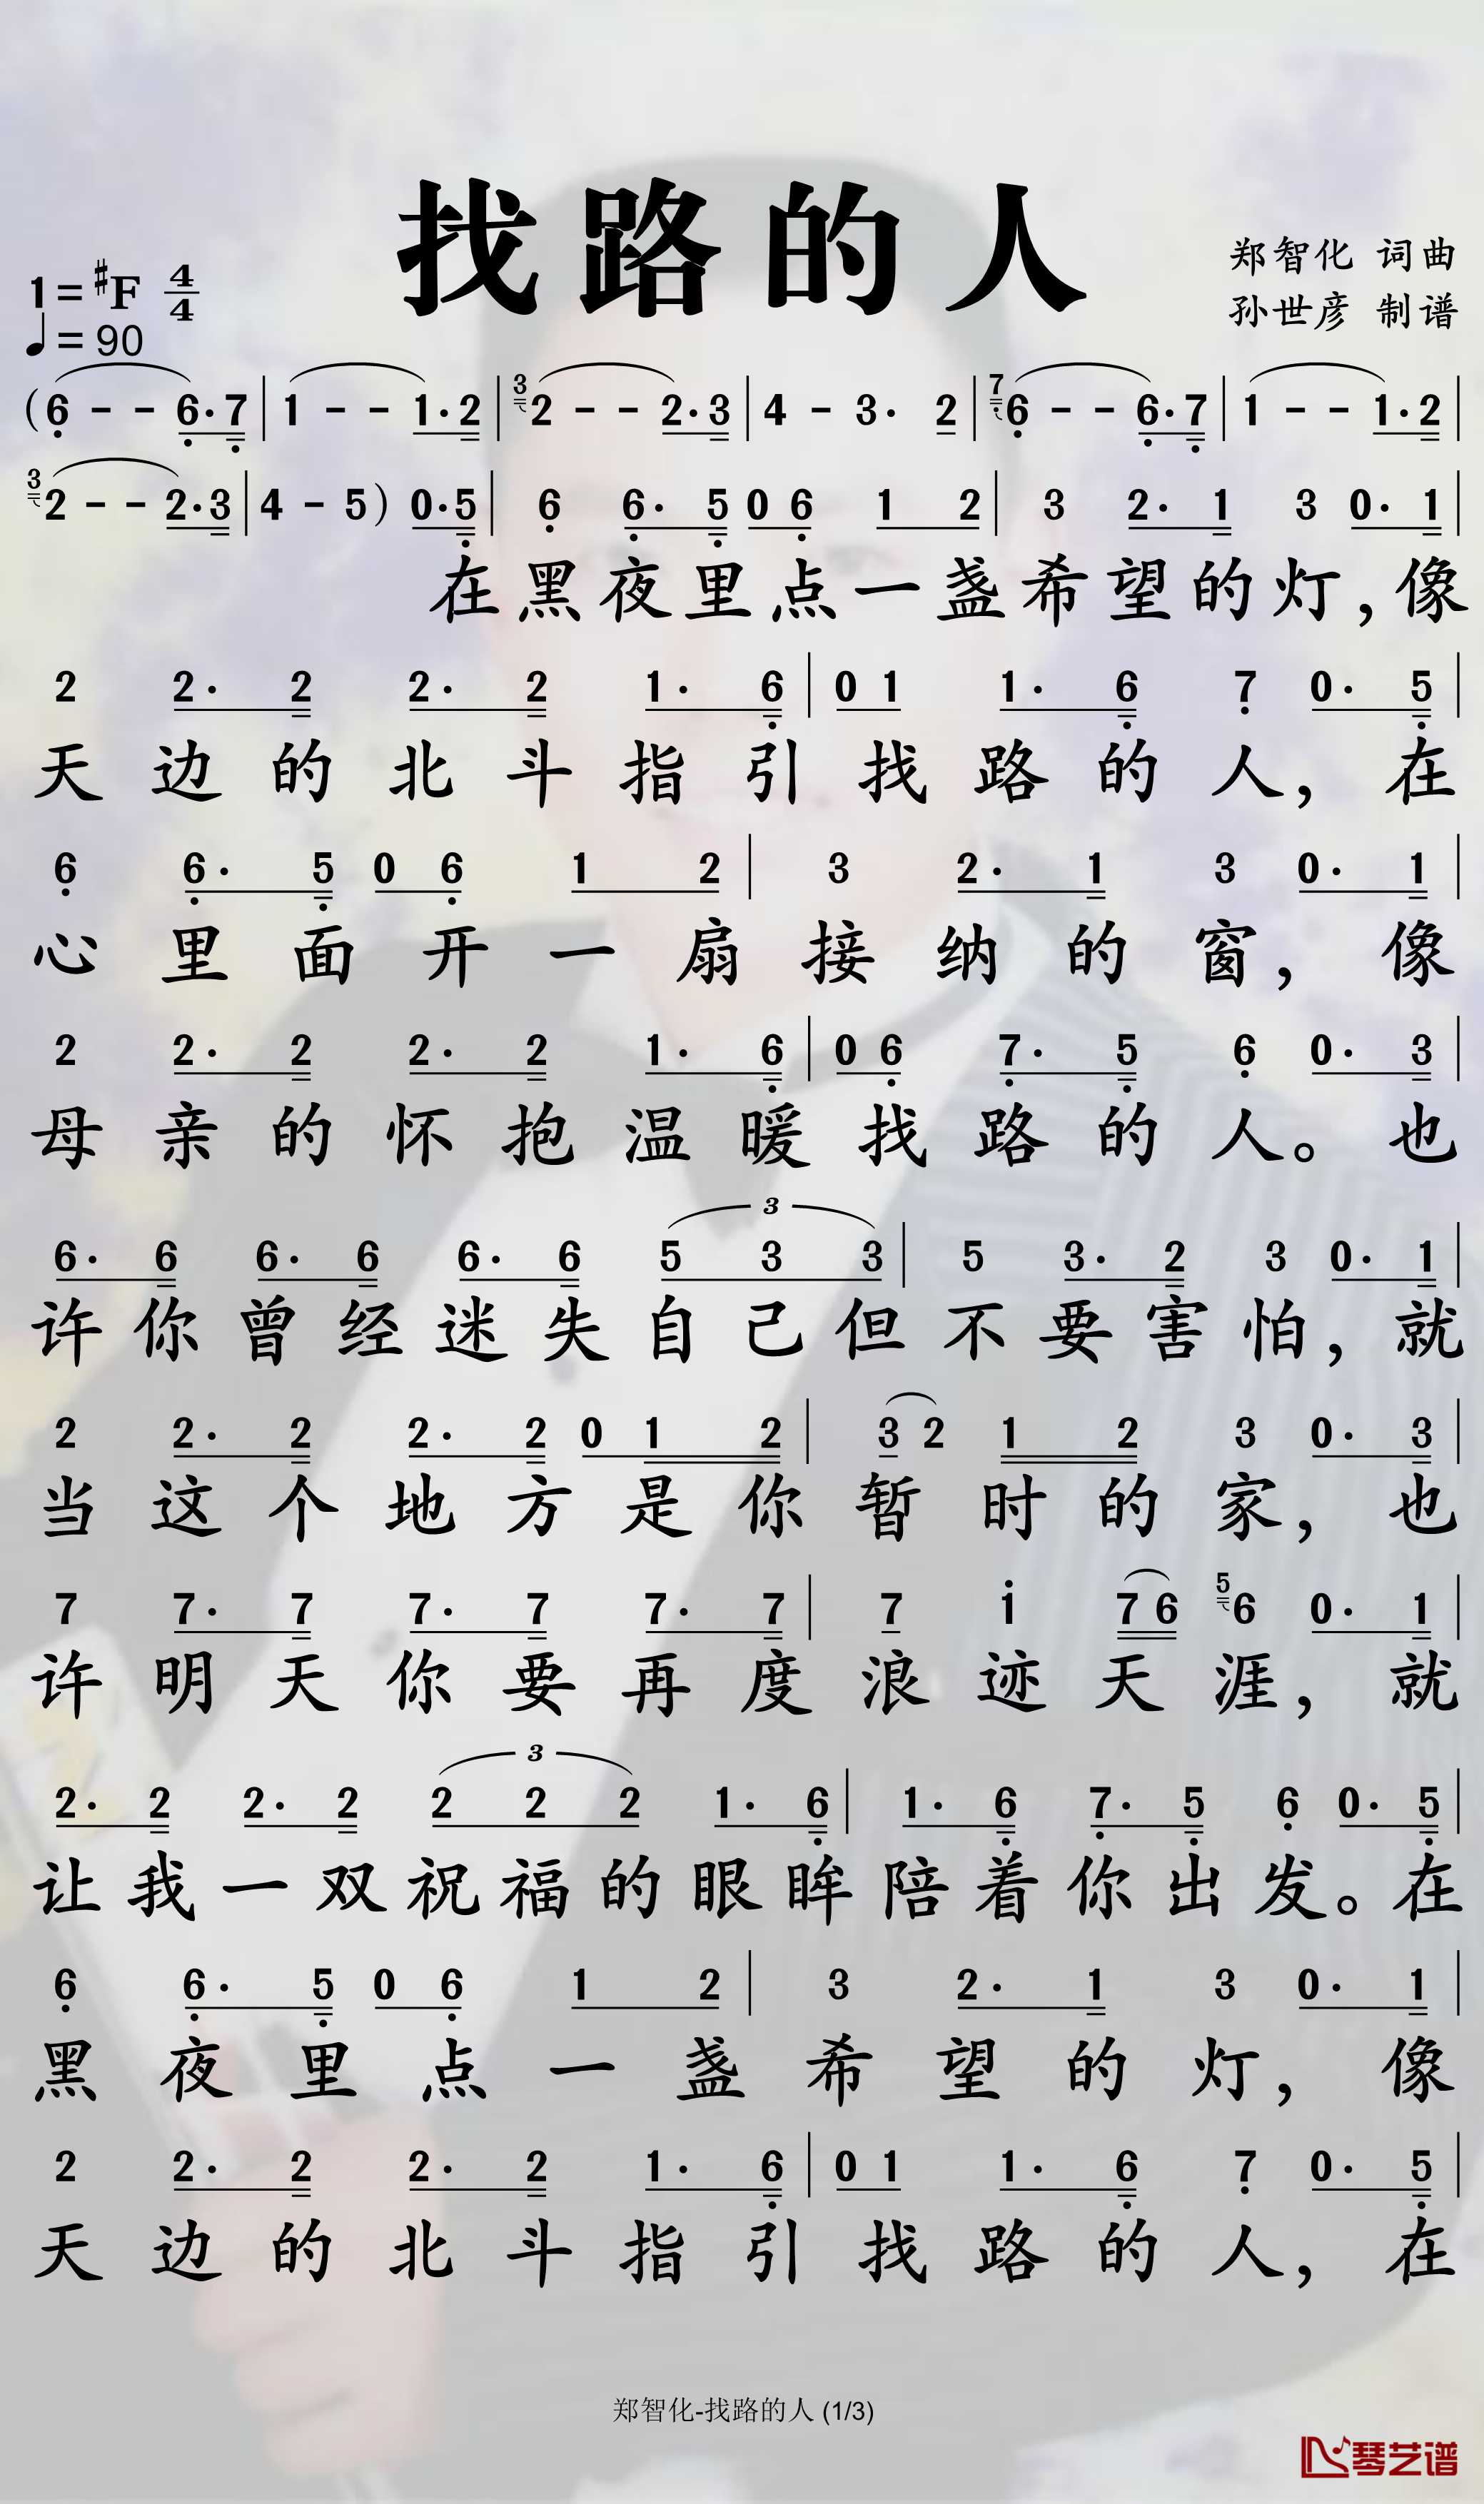 找路的人
郑智化 词曲
孙世彦 制谱
1=♯F 4/4
♩=90
(6 - - 6·7 | 1 - - 1·2 | 3 2 - - 2·3 | 4 - 3· 2 | 7 6 - - 6·7 | 1 - - 1·2 |
3 2 - - 2·3 | 4 - 5) 0·5 | 6 6· 5 0 6 1 2 | 3 2· 1 3 0· 1 |
在黑夜里点一盏希望的灯,像
2 2· 2 2· 2 1· 6 | 0 1 1· 6 7 0· 5 |
天边的北斗指引找路的人,在
6 6· 5 0 6 1 2 | 3 2· 1 3 0· 1 |
心里面开一扇接纳的窗,像
2 2· 2 2· 2 1· 6 | 0 6 7· 5 6 0· 3 |
母亲的怀抱温暖找路的人。也
3 3
6· 6 6· 6 6· 6 5 3 3 | 5 3· 2 3 0· 1 |
许你曾经迷失自己但不要害怕,就
2 2· 2 2· 2 0 1 2 | 3 2 1 2 3 0· 3 |
当这个地方是你暂时的家,也
7 7· 7 7· 7 7· 7 | 7 i 7 6 5 6 0· 1 |
许明天你要再度浪迹天涯,就
3
2· 2 2· 2 2 2 2 1· 6 | 1· 6 7· 5 6 0· 5 |
让我一双祝福的眼眸陪着你出发。在
6 6· 5 0 6 1 2 | 3 2· 1 3 0· 1 |
黑夜里点一盏希望的灯,像
2 2· 2 2· 2 1· 6 | 0 1 1· 6 7 0· 5 |
天边的北斗指引找路的人,在
郑智化-找路的人 (1/3)
琴艺谱